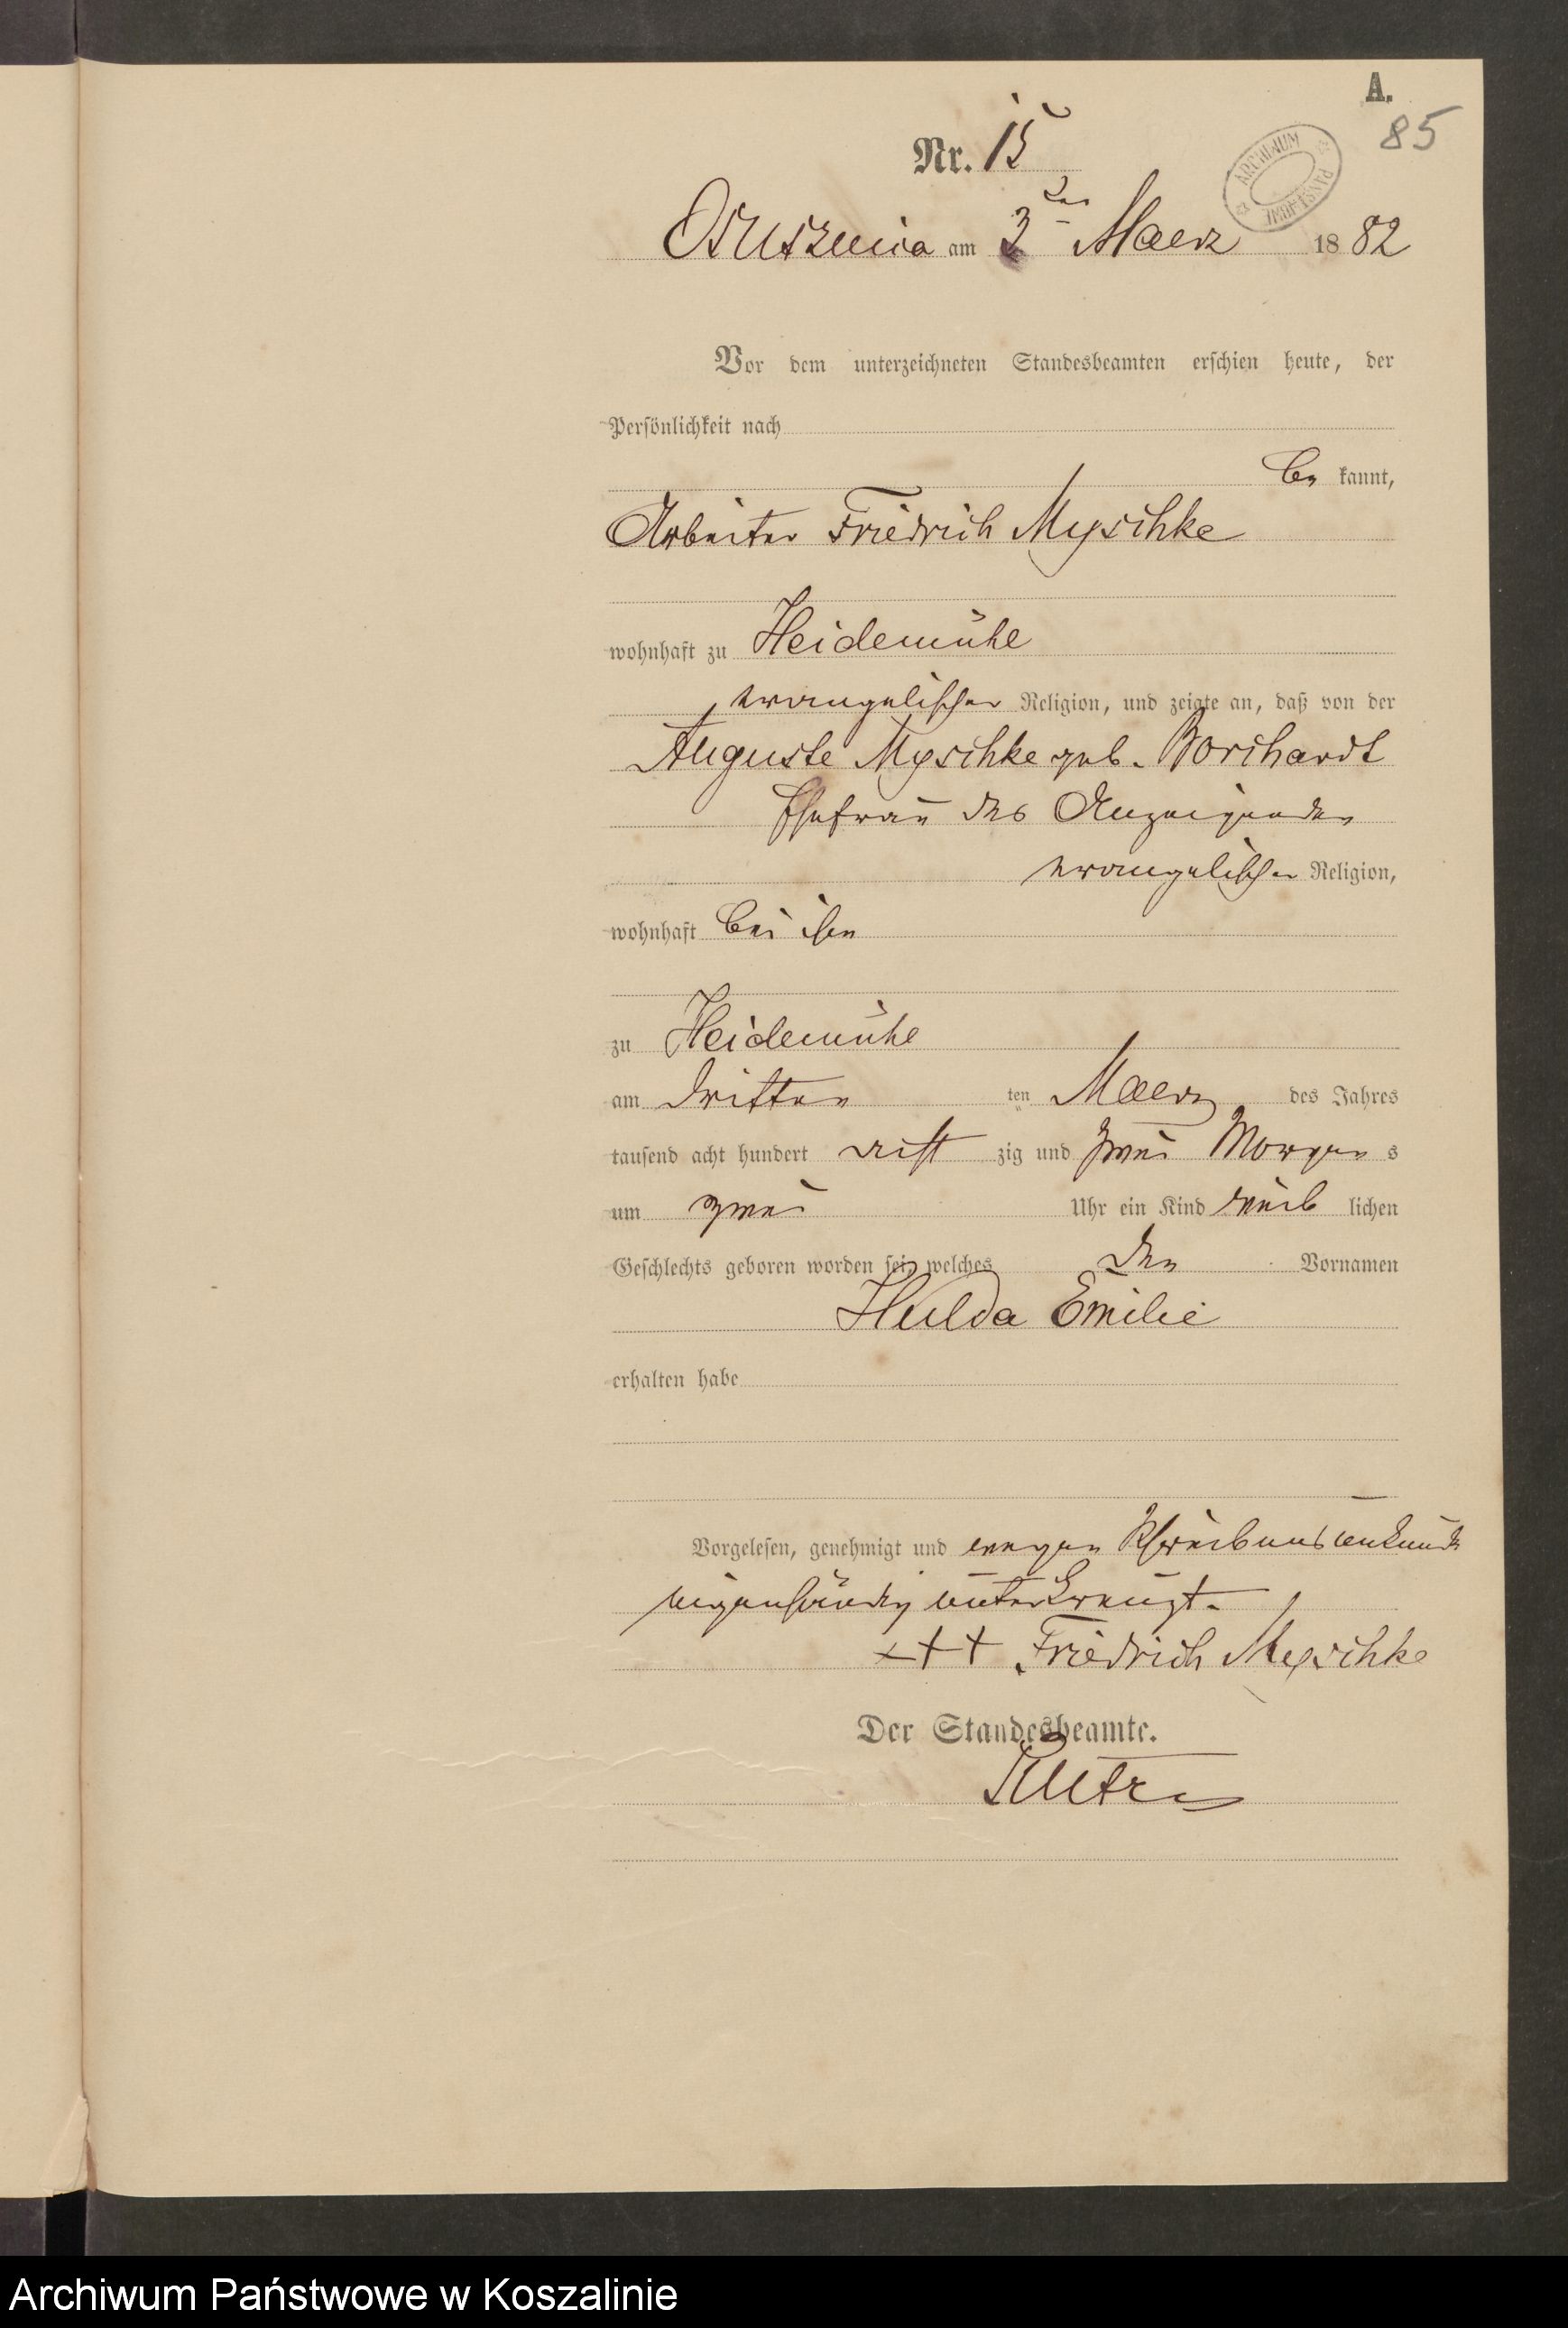 A.
85
Nr. 15
ARCHIWUM PAŃSTWOWE
Osusznica am 3ten Maerz 1882
Vor dem unterzeichneten Standesbeamten erschien heute, der
Persönlichkeit nach
be kannt,
Arbeiter Friedrich Myschke
wohnhaft zu Heidemühl
evangelischer Religion, und zeigte an, daß von der
Auguste Myschke geb. Borchardt
Ehefrau des Anzeigenden
evangelischer Religion,
wohnhaft bei ihm
zu Heidemühl
am dritten ten Maerz des Jahres
tausend acht hundert acht zig und zwei Morgen s
um zwei Uhr ein Kind weib lichen
Geschlechts geboren worden sei, welches den Vornamen
Hulda Emilie
erhalten habe
Vorgelesen, genehmigt und wegen Schreibensunkunde
eigenhändig unterkreuzt.
+++ Friedrich Myschke
Der Standesbeamte.
Archiwum Państwowe w Koszalinie